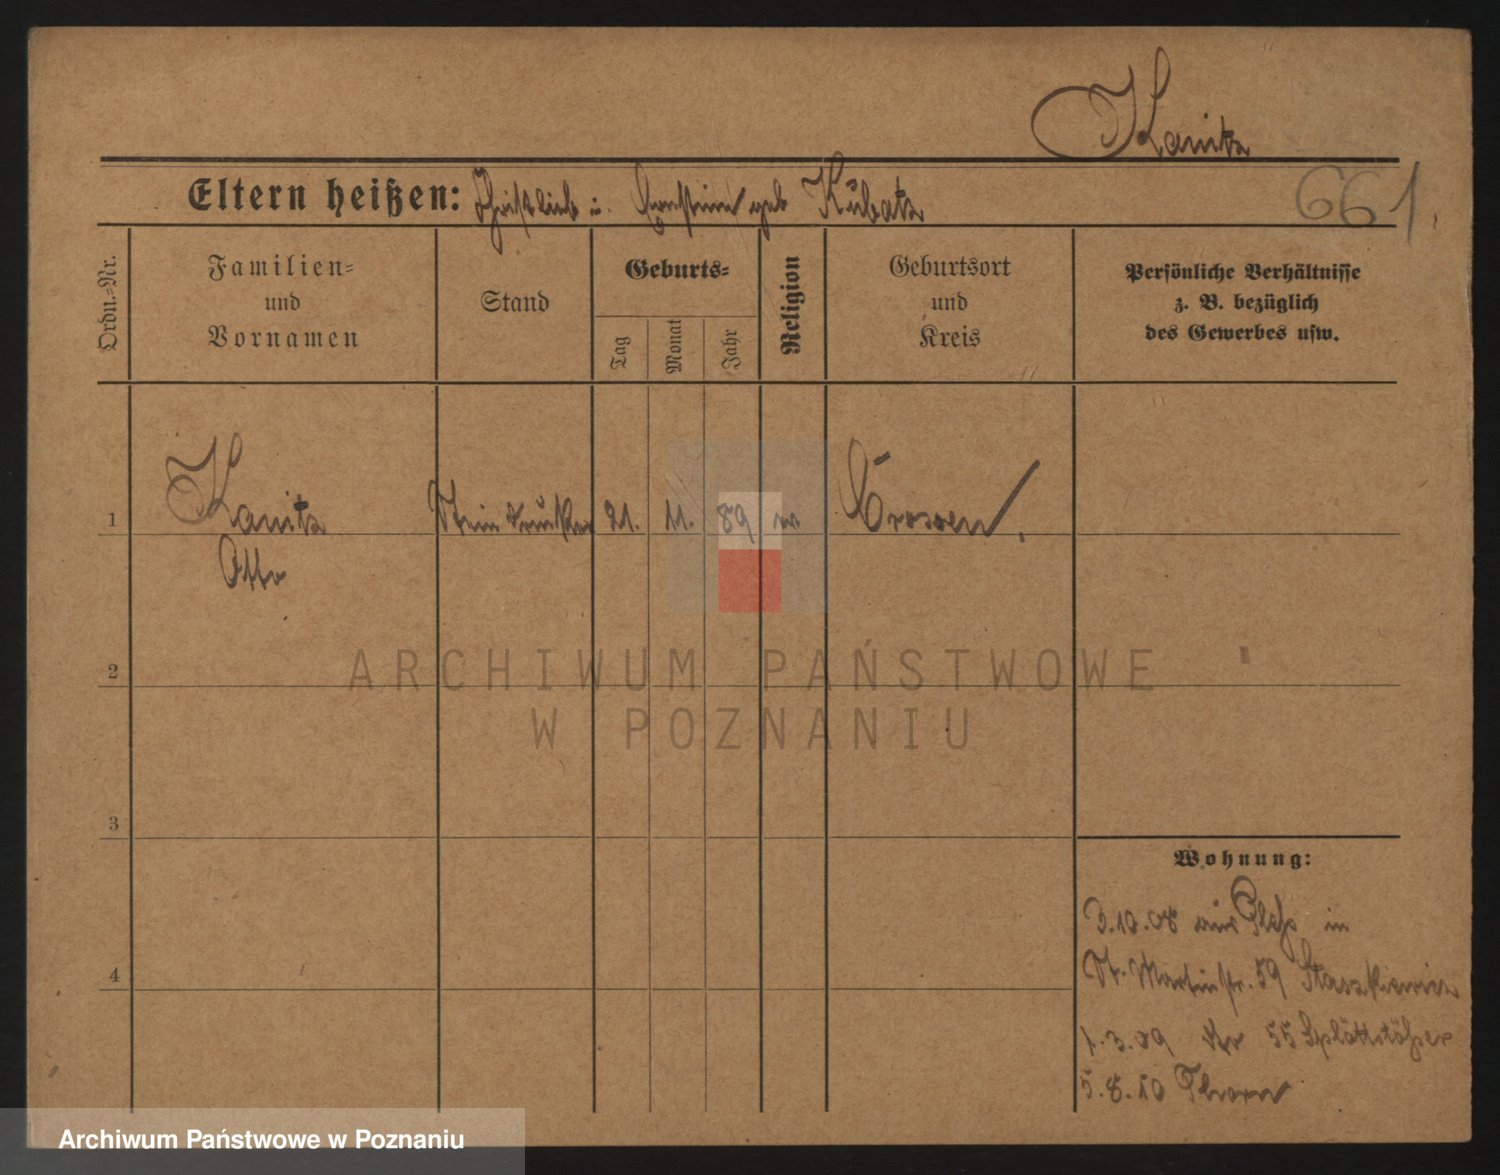 Kanitz
Eltern heißen: Christlieb u. Ernstine geb Kubatz
661
Ordn.=Nr.
Familien=
und
Vornamen
Stand
Geburts=
Tag
Monat
Jahr
Religion
Geburtsort
und
Kreis
Persönliche Verhältnisse
z. B. bezüglich
des Gewerbes usw.
1
Kanitz
Otto
Steindrucker
21. 11. 89
Crossen
2
3
4
ARCHIWUM PAŃSTWOWE
W POZNANIU
Wohnung:
3.10.08 aus Pleß in
St. Martinstr. 59 Staszkiewicz
1.3.09 55 Splättstößer
5.8.10 Thorn
Archiwum Państwowe w Poznaniu